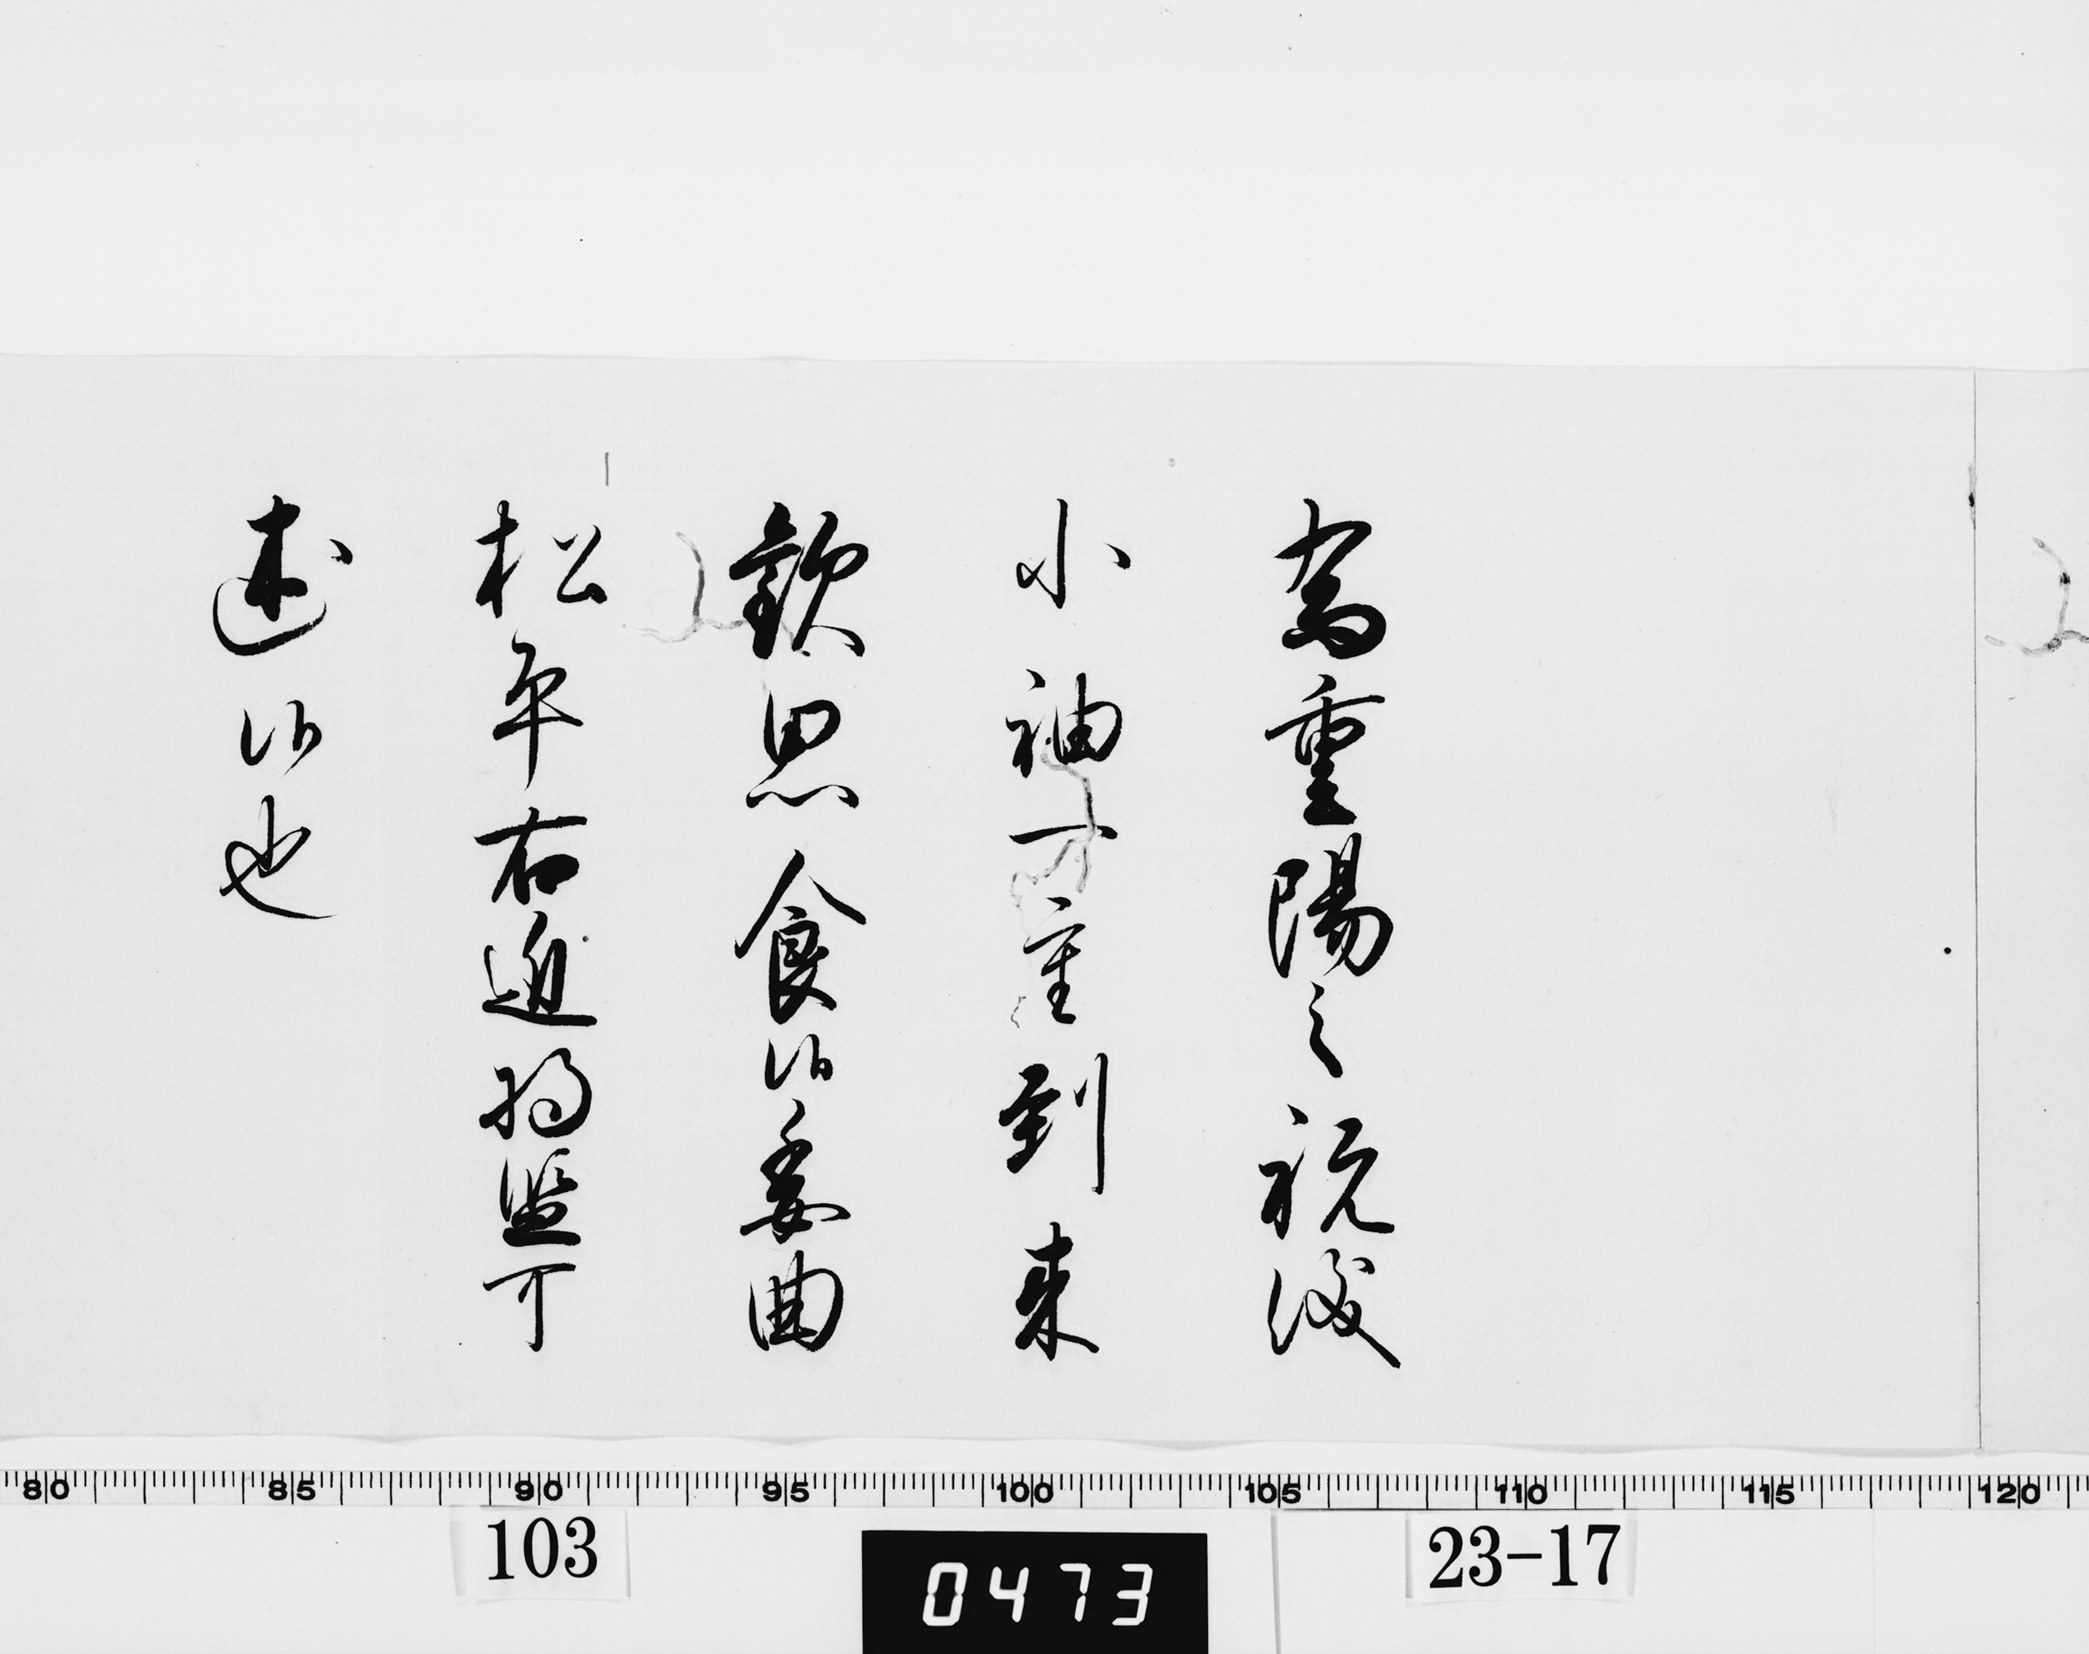 為重陽之祝儀
小袖一重到来
歓思食候委曲
松平右近将監可
述候也
80 85 90 95 100 105 110 115 120
103
0473
23-17